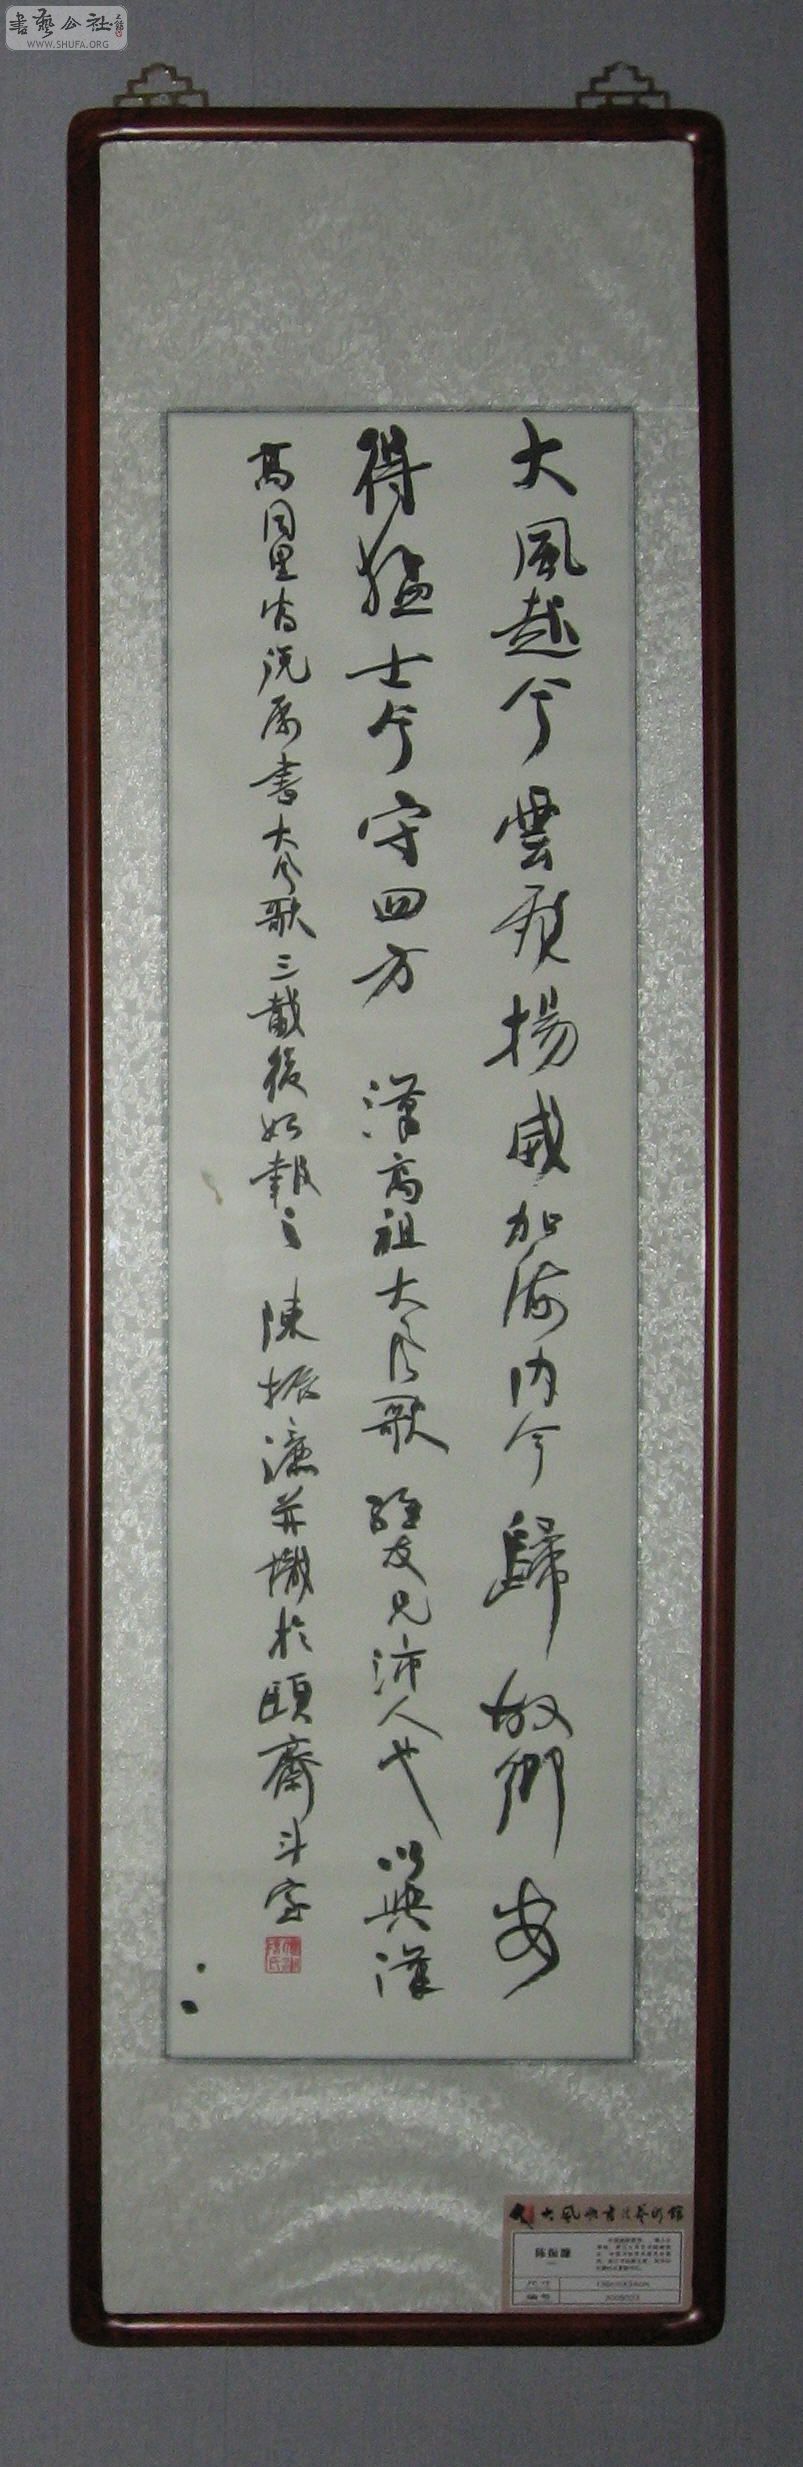 大風起兮雲飛揚威加海内兮歸故鄉安
得猛士兮守四方 漢高祖大風歌 友兄沛人也以與漢
高同里 書大风歌三載後始報之 陳振濂并 於頤齋斗室
書藝公社
WWW.SHUFA.ORG
大風歌書法藝術館
陈振濂
尺寸
编号